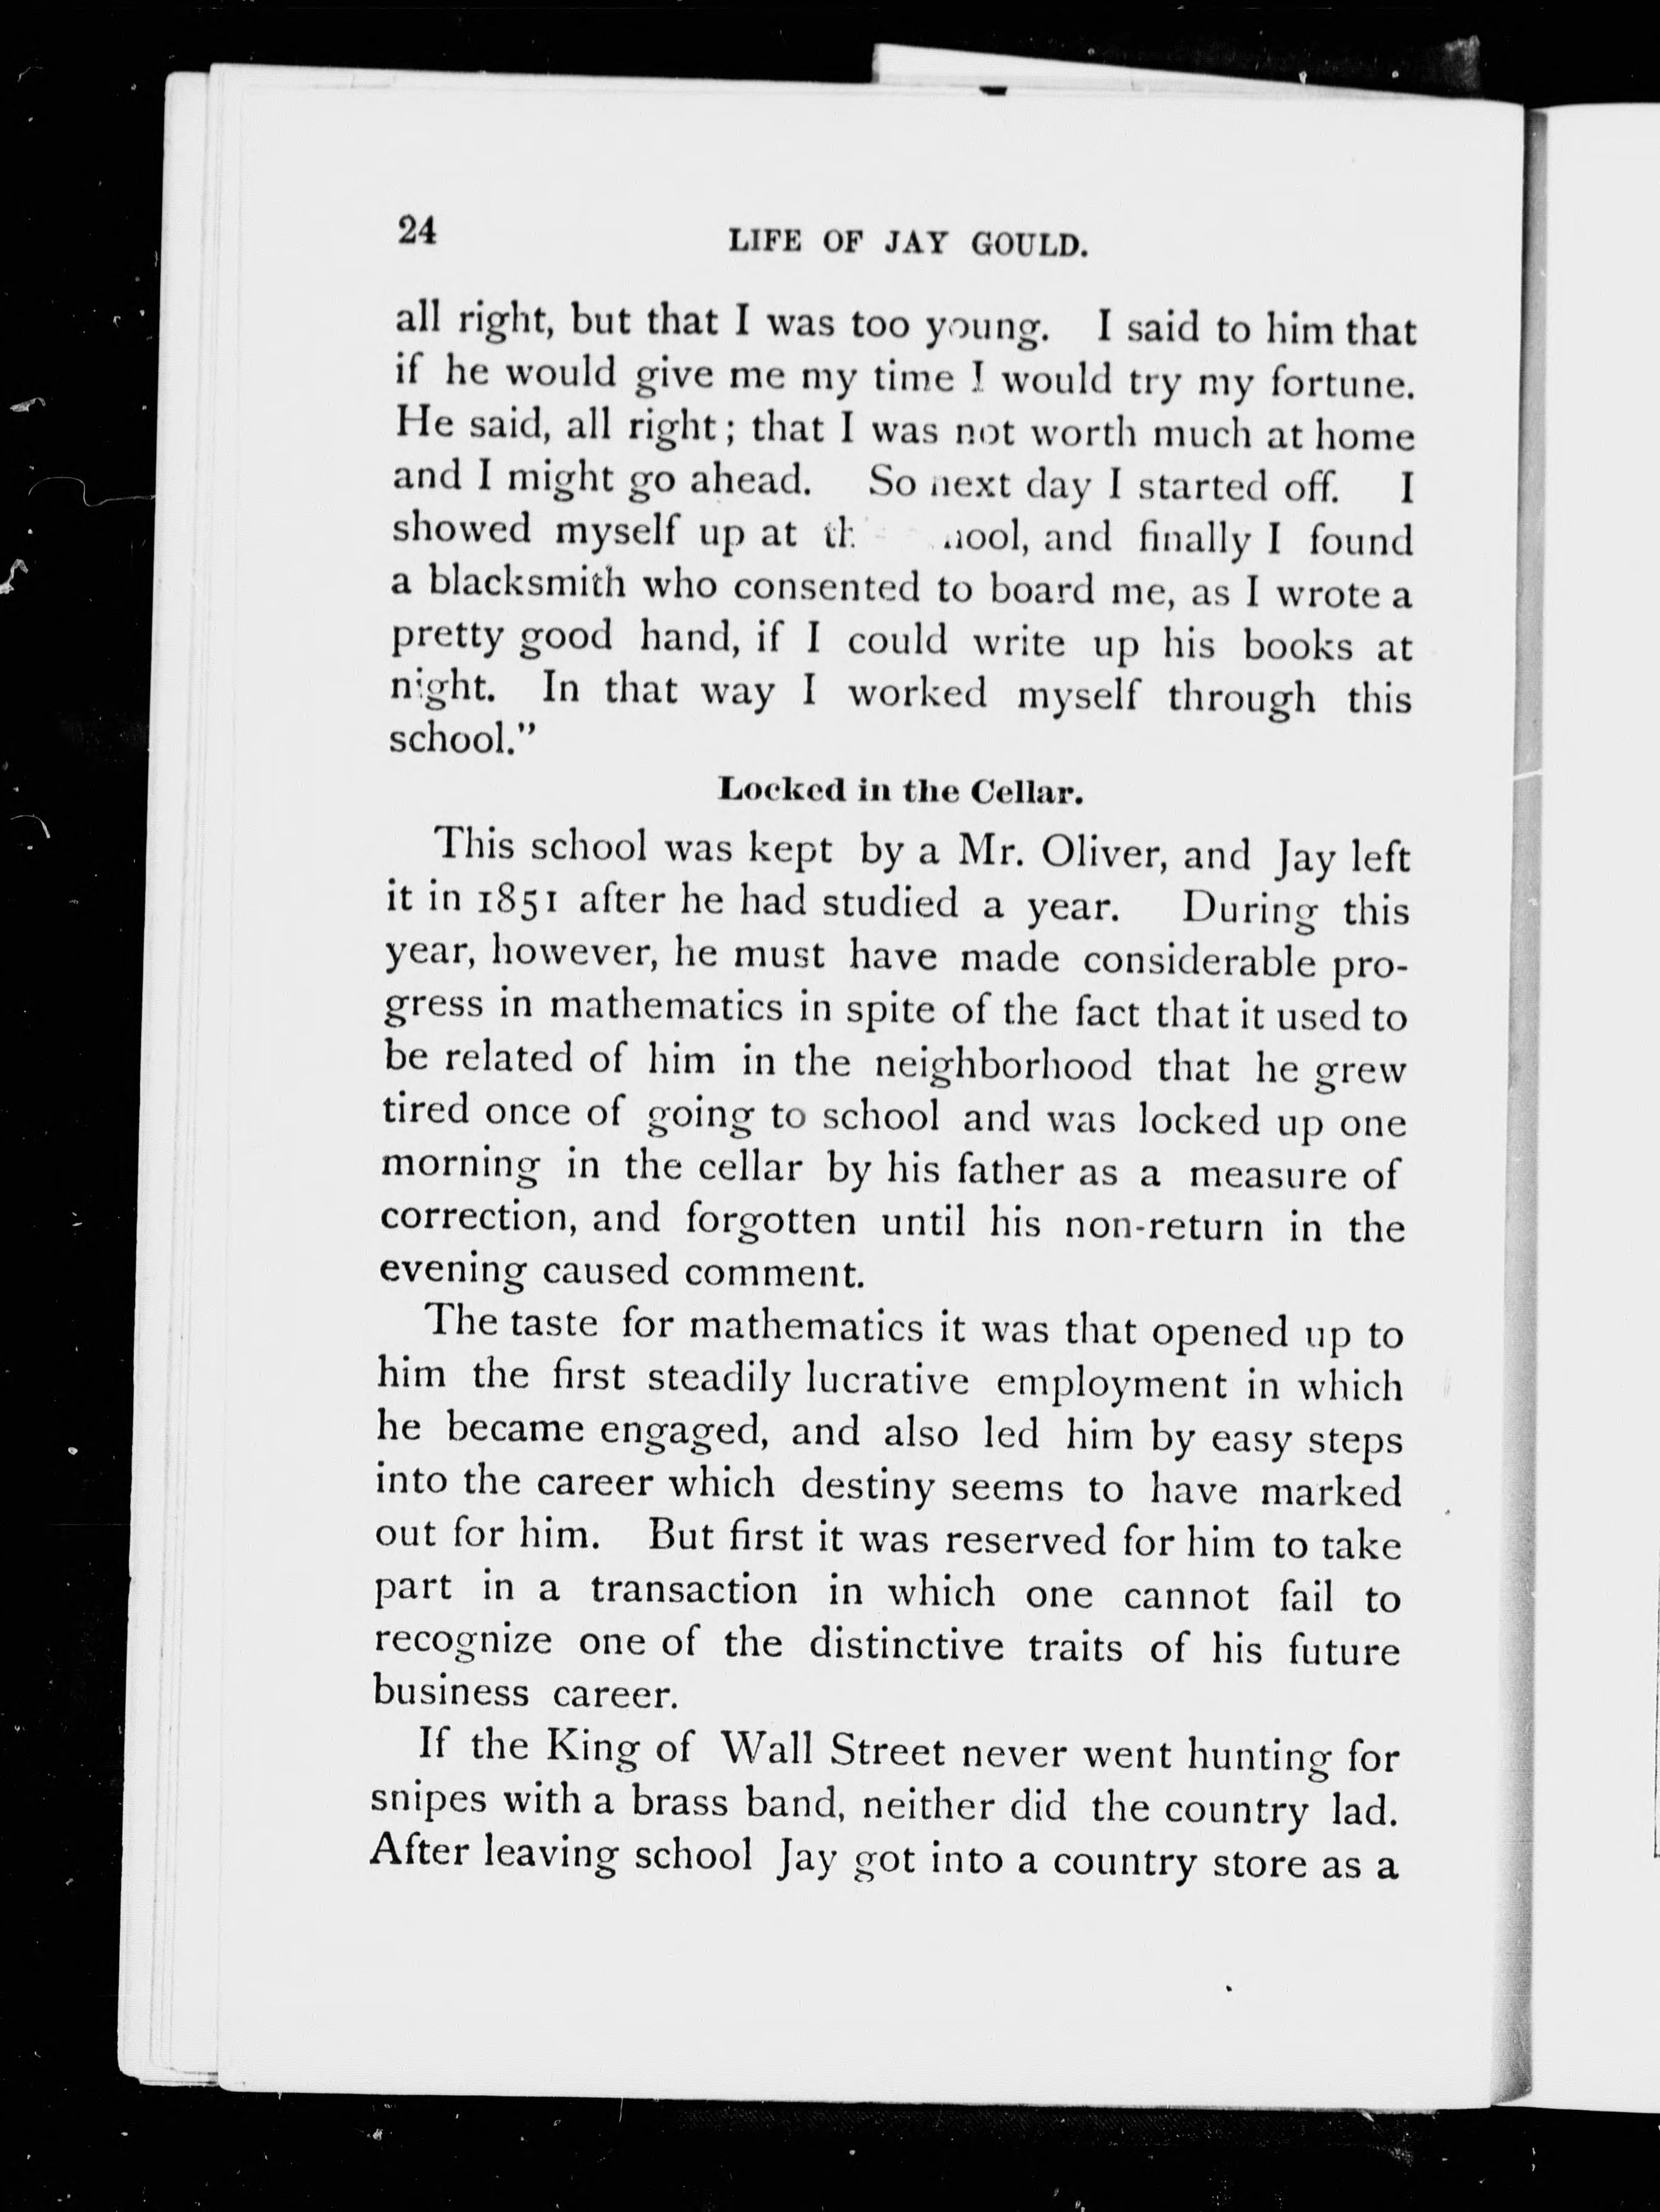 24
LIFE OF JAY GOULD.
all right, but that I was too young. I said to him that
if he would give me my time I would try my fortune.
He said, all right; that I was not worth much at home
and I might go ahead. So next day I started off. I
showed myself up at and finally I found
a blacksmith who consented to board me, as I wrote a
pretty good hand, if I could write up his books at
night. In that way I worked myself through this
school."
Locked in the Cellar.
This school was kept by a Mr. Oliver, and Jay left
it in 1851 after he had studied a year. During this
year, however, he must have made considerable pro-
gress in mathematics in spite of the fact that it used to
be related of him in the neighborhood that he grew
tired once of going to school and was locked up one
morning in the cellar by his father as a measure of
correction, and forgotten until his non-return in the
evening caused comment.
The taste for mathematics it was that opened up to
him the first steadily lucrative employment in which
he became engaged, and also led him by easy steps
into the career which destiny seems to have marked
out for him. But first it was reserved for him to take
part in a transaction in which one cannot fail to
recognize one of the distinctive traits of his future
business career.
If the King of Wall Street never went hunting for
snipes with a brass band, neither did the country lad.
After leaving school Jay got into a country store as a